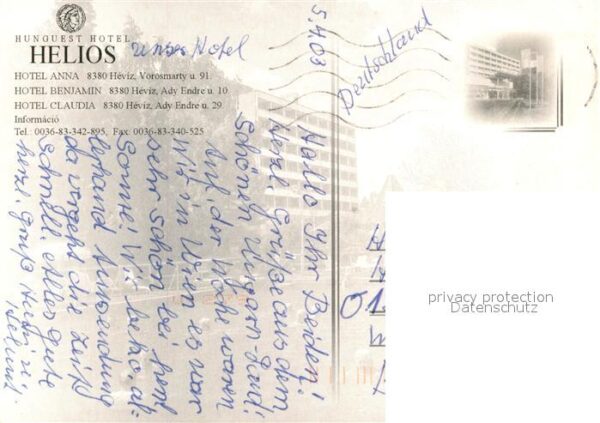 HUNGUEST HOTEL
HELIOS
unser Hotel
HOTEL ANNA 8380 Hévíz, Vörösmarty u. 91.
HOTEL BENJAMIN 8380 Hévíz, Ady Endre u. 10.
HOTEL CLAUDIA 8380 Hévíz, Ady Endre u. 29.
Információ
Tel.: 0036-83-342-895, Fax: 0036-83-340-525
5.4.03
Deutschland
Hallo Ihr Beiden!
Herzl. Grüße aus dem
schönen Ungarn-Land!
Auf der Höhe waren
wir in Wien es war
sehr schön bei herrl.
Sonne! Wir bekо. al=
lerhand Anwendung
da vergeht die Zeit
schnell. Alles Gute
herzl. Gruß
Helmut
01
privacy protection
Datenschutz